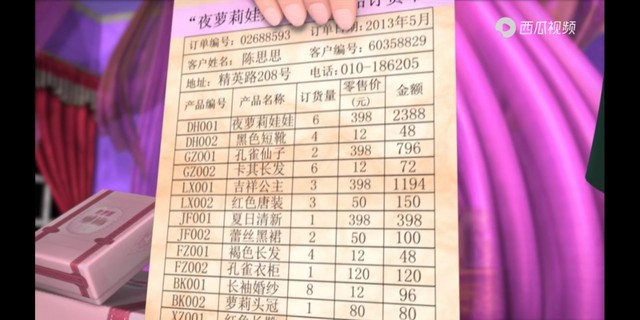 "夜萝莉娃
西瓜视频
订单编号: 02688593 订单日期: 2013年5月
客户姓名: 陈思思 客户编号: 60358829
地址: 精英路208号 电话: 010-186205
产品编号 产品名称 订货量 零售价(元) 金额
DH001 夜萝莉娃娃 6 398 2388
DH002 黑色短靴 4 12 48
GZ001 孔雀仙子 2 398 796
GZ002 卡其长发 6 12 72
LX001 吉祥公主 3 398 1194
LX002 红色唐装 3 50 150
JF001 夏日清新 1 398 398
JF002 蕾丝黑裙 2 50 100
FZ001 褐色长发 4 12 48
FZ002 孔雀衣柜 1 120 120
BK001 长袖婚纱 8 12 96
BK002 萝莉头冠 1 80 80